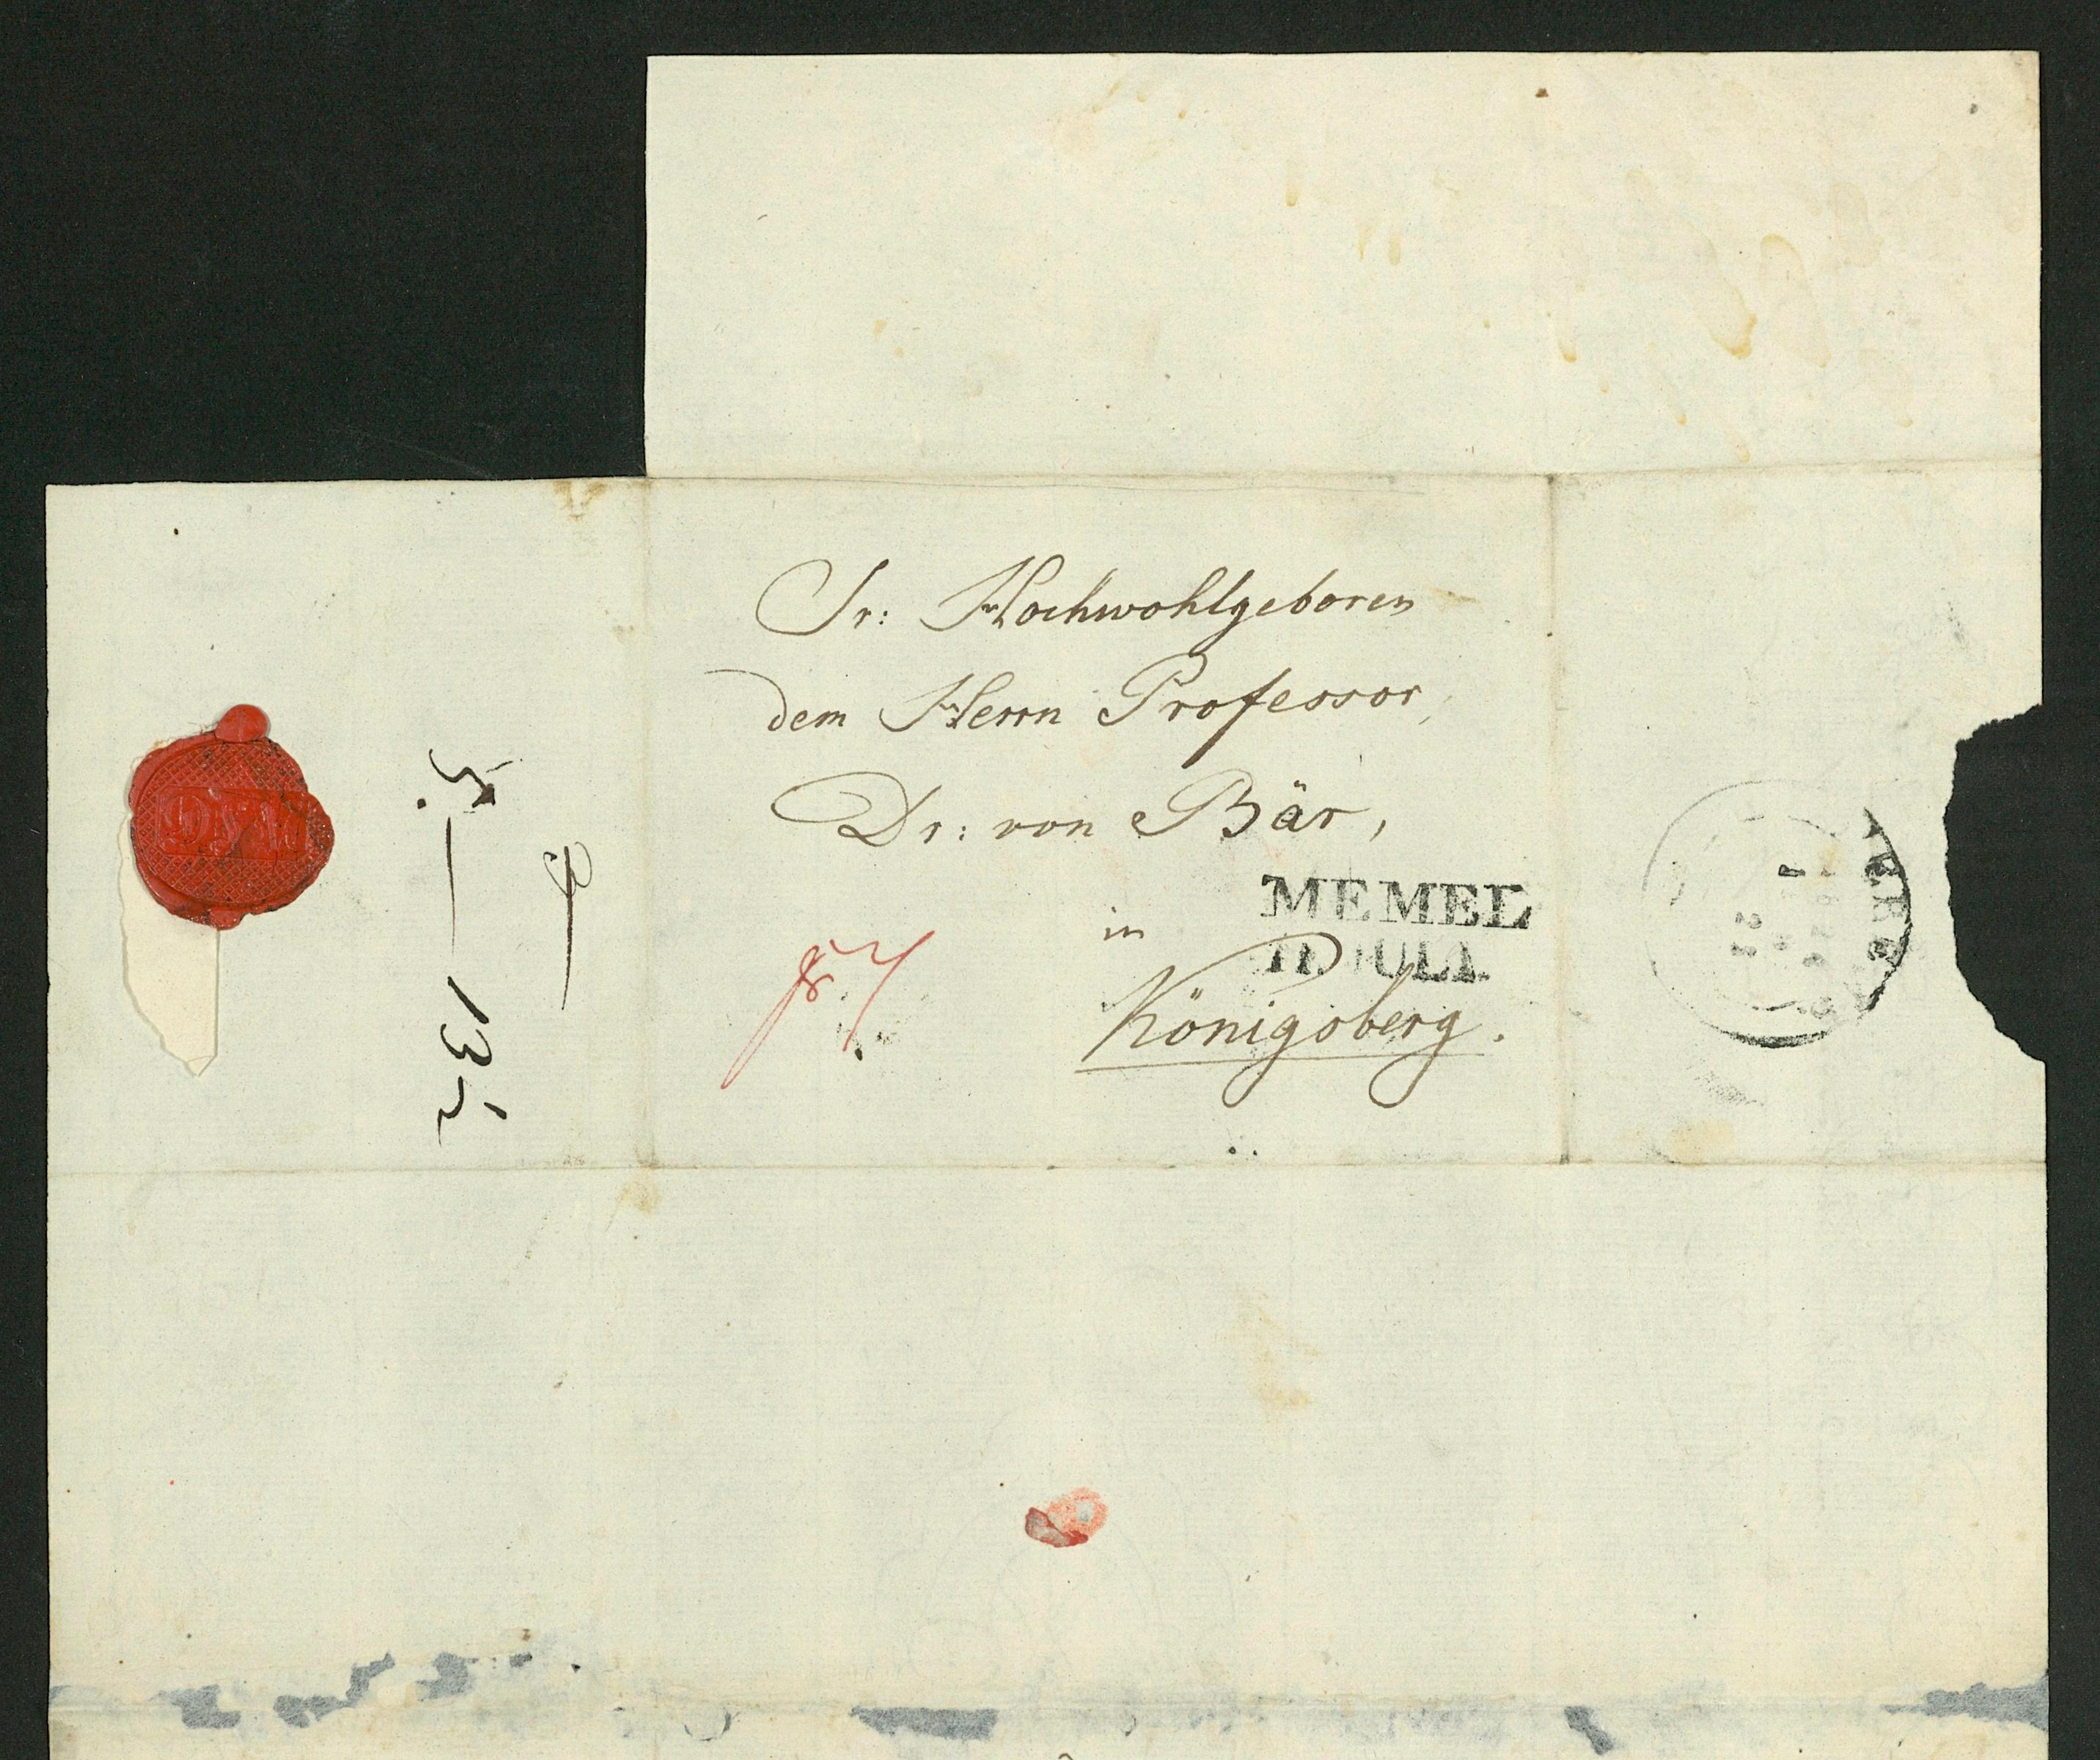 Sr: Hochwohlgeboren
dem Herrn Professor,
Dr: von Bär,
in
Königsberg.
MEMEL
JULI